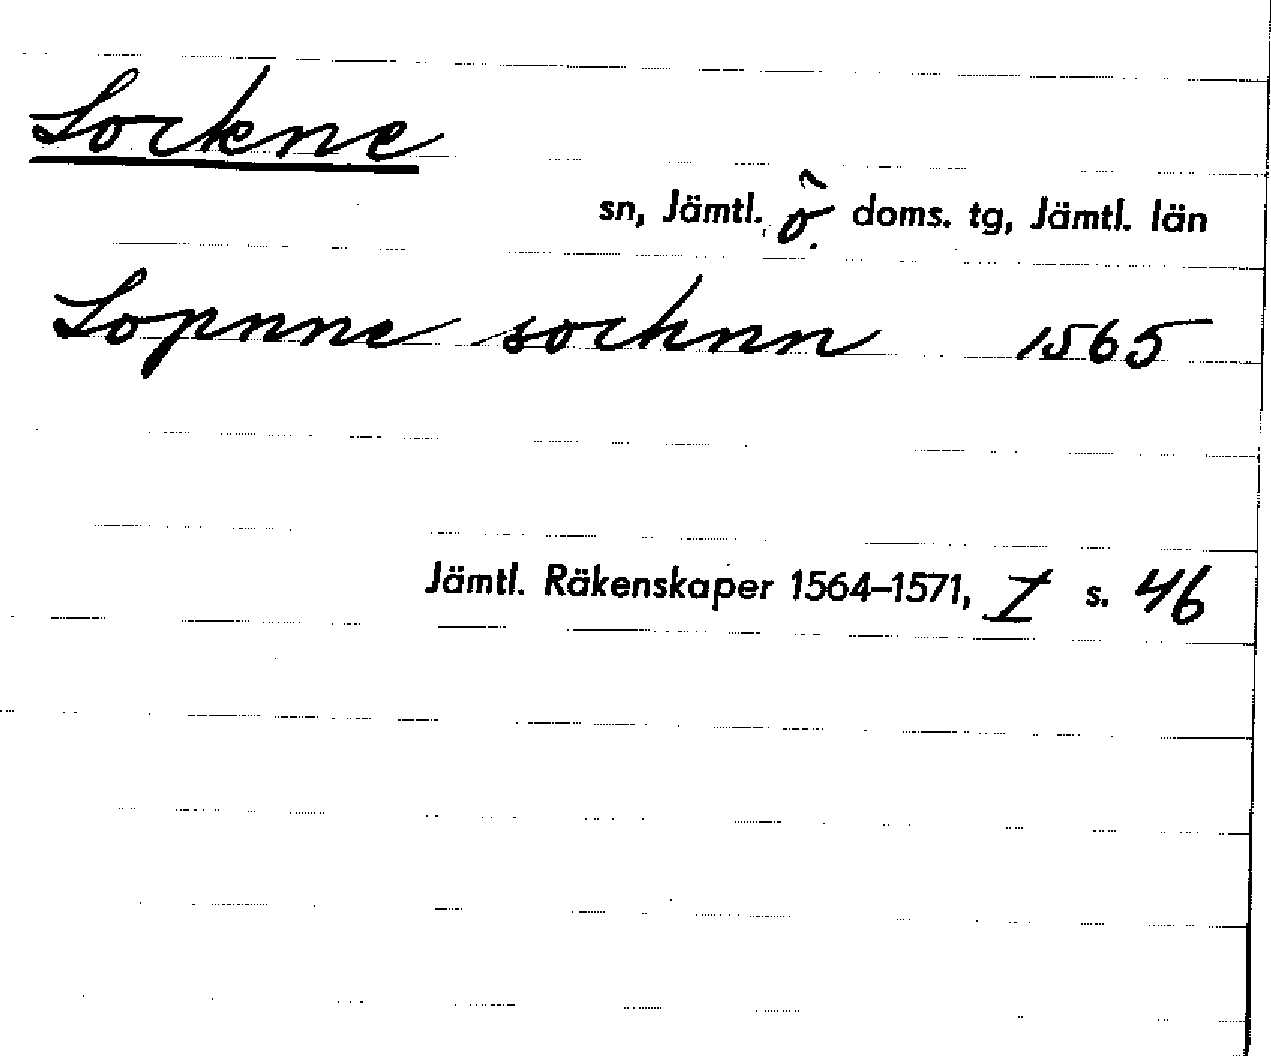 Lockne
sn, Jämtl. ö. doms. tg, Jämtl. län
Lopnne sochnn 1565
Jämtl. Räkenskaper 1564–1571, I s. 46